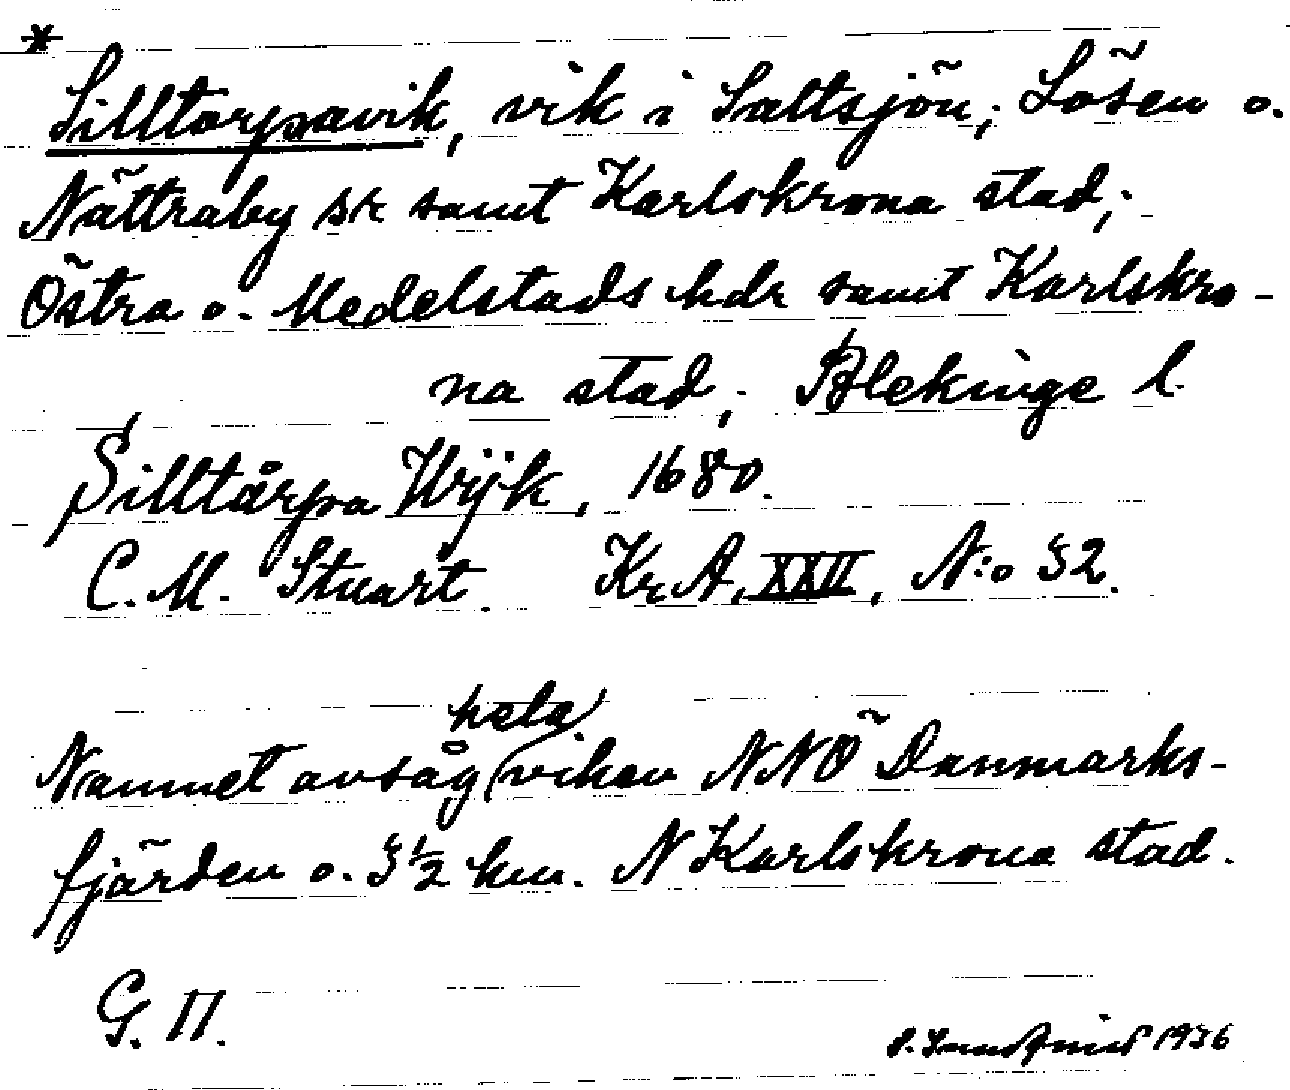 *
Silltorpavik, vik i Saltsjön; Lösen o.
Nättraby sk samt Karlskrona stad;
Östra o. Medelstads hdr samt Karlskro-
na stad; Blekinge l.
Silltårpa Wijk, 1680.
C. M. Stuart. Kr. A. XXII, N:o 32.
hela
Namnet avsåg viken NNÖ Danmarks-
fjärden o. 3½ km. N Karlskrona stad.
G. Π.
1936